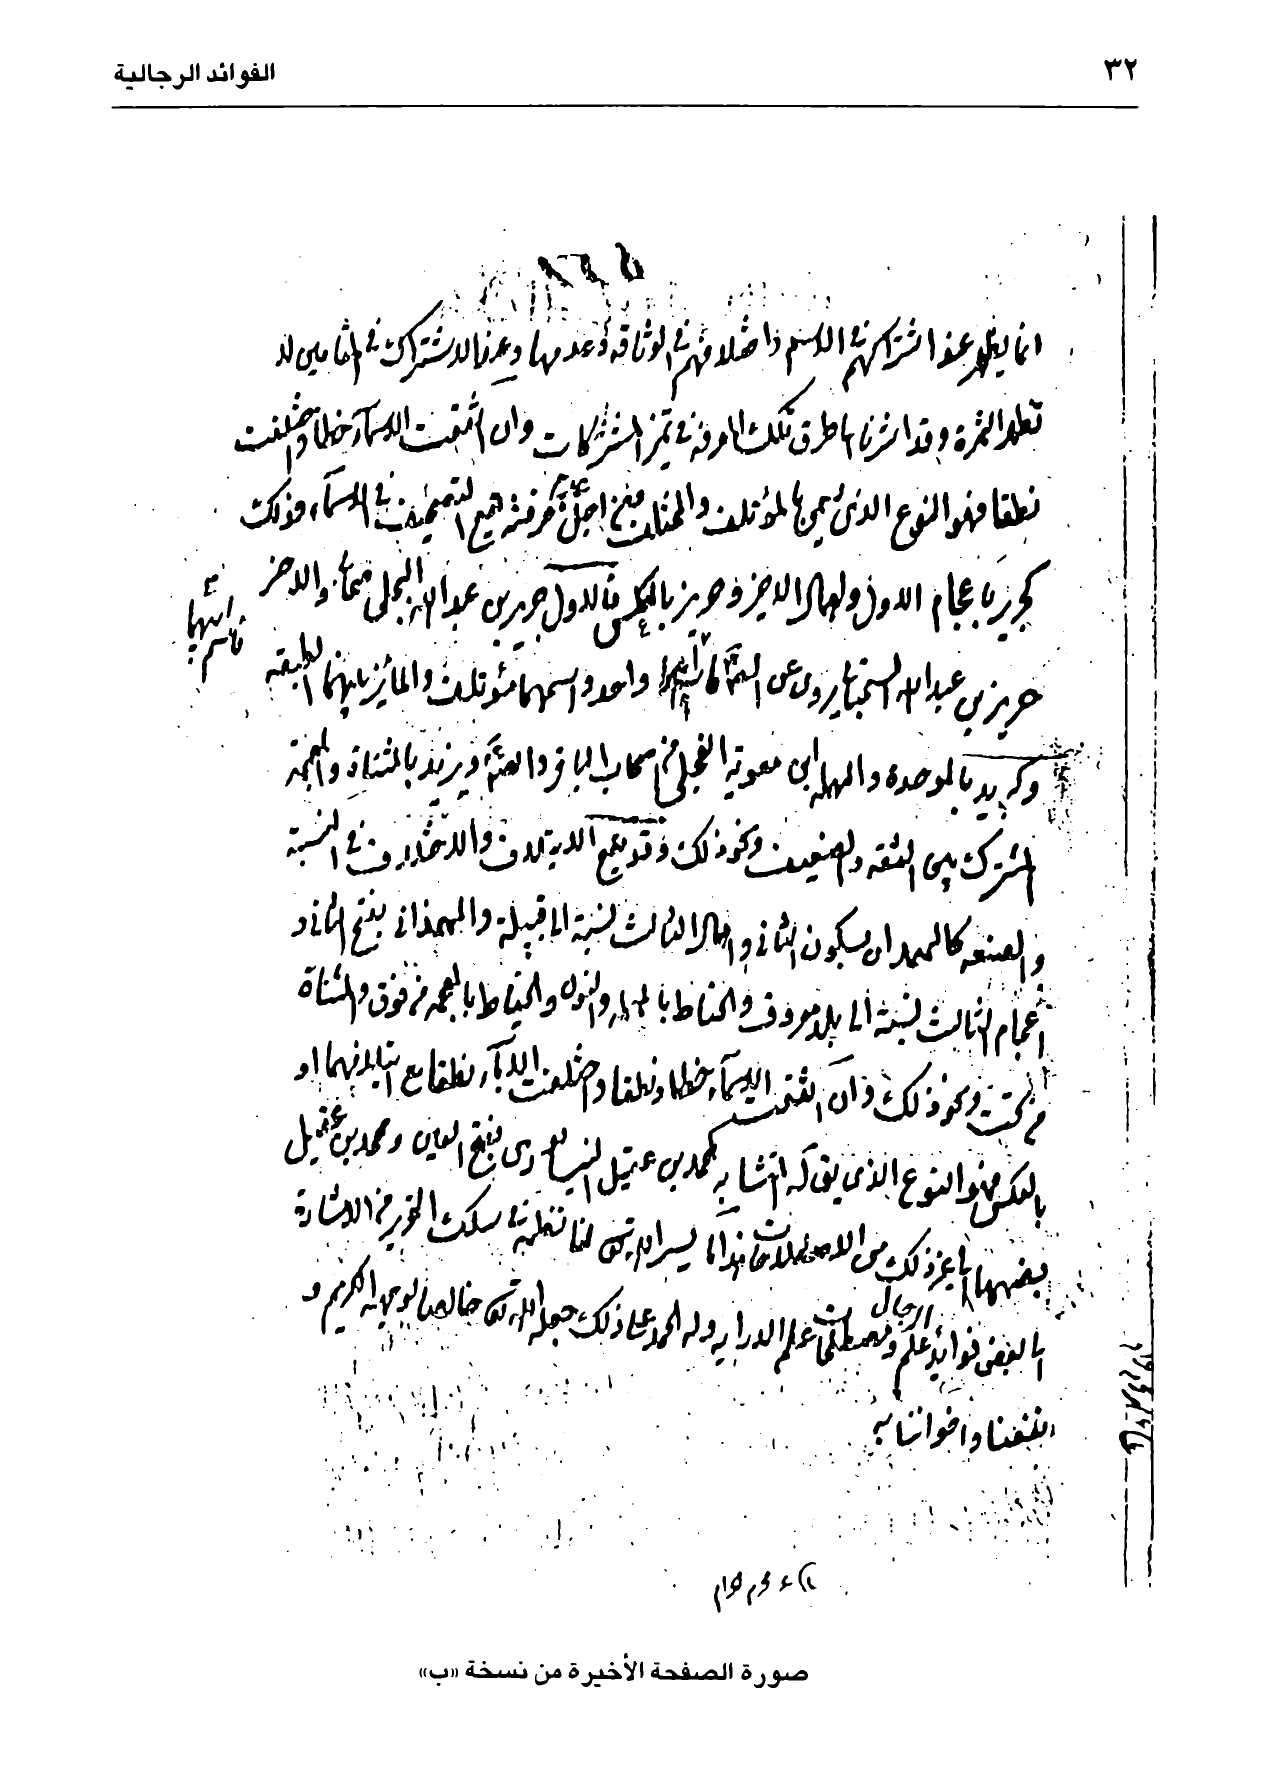 ٣٢
الفوائد الرجالية
انما يظهر عند اشتراكهم في الاسم واختلافهم في الوثاقة وعدمها وعند الاشتراك في لا
تظهر الثمرة وقد اشرنا الى طرق تلك المعرفة في تميز المشتركات وان اتفقت الاسماء خطا واختلفت
نطقا فهو النوع الذي يسمى بالمؤتلف والمختلف معرفته التصحيف في الاسماء وذلك
كجرير باعجام الاول واهمال الاخير وحريز بالعكس فالاول جرير بن عبد الله البجلي صحابي والاخر
حريز بن عبد الله السجستاني يروي عن الصادق واحد واسمهما مؤتلف والمائز بينهما الطبقة
وكبريد بالموحدة والمهملة ابن معوية العجلي من اصحاب الباقر والصادق ويزيد بالمثناة والمعجمة
المشترك بين الثقة والضعيف ونحو ذلك وقد يقع الايتلاف والاختلاف في النسبة
والصنعة كالهمداني بسكون الثاني واهمال الثالث نسبة الى قبيلة والهمذاني بفتح الثاني و
اعجام الثالث نسبة الى بلد معروف والحناط بالمهملة والنون والخياط بالمعجمة من فوق والمثناة
من تحت ونحو ذلك وان اتفقت الاسماء خطا ونطقا واختلفت الآباء نطقا مع ايتلافهما او
بالعكس فهو النوع الذي يق له المتشابه كمحمد بن عقيل النيسابوري بفتح العين ومحمد بن عقيل
بضمها الى غير ذلك من الاصطلاحات هذا ما يسر الله تع لنا نظمه في سلك التحرير من الاشارة
الى بعض فوائد علم الرجال ومصطلحات علم الدراية وله الحمد على ذلك جعله الله تع خالصا لوجهه الكريم و
ينفعنا واخواننا به
صورة الصفحة الأخيرة من نسخة «ب»